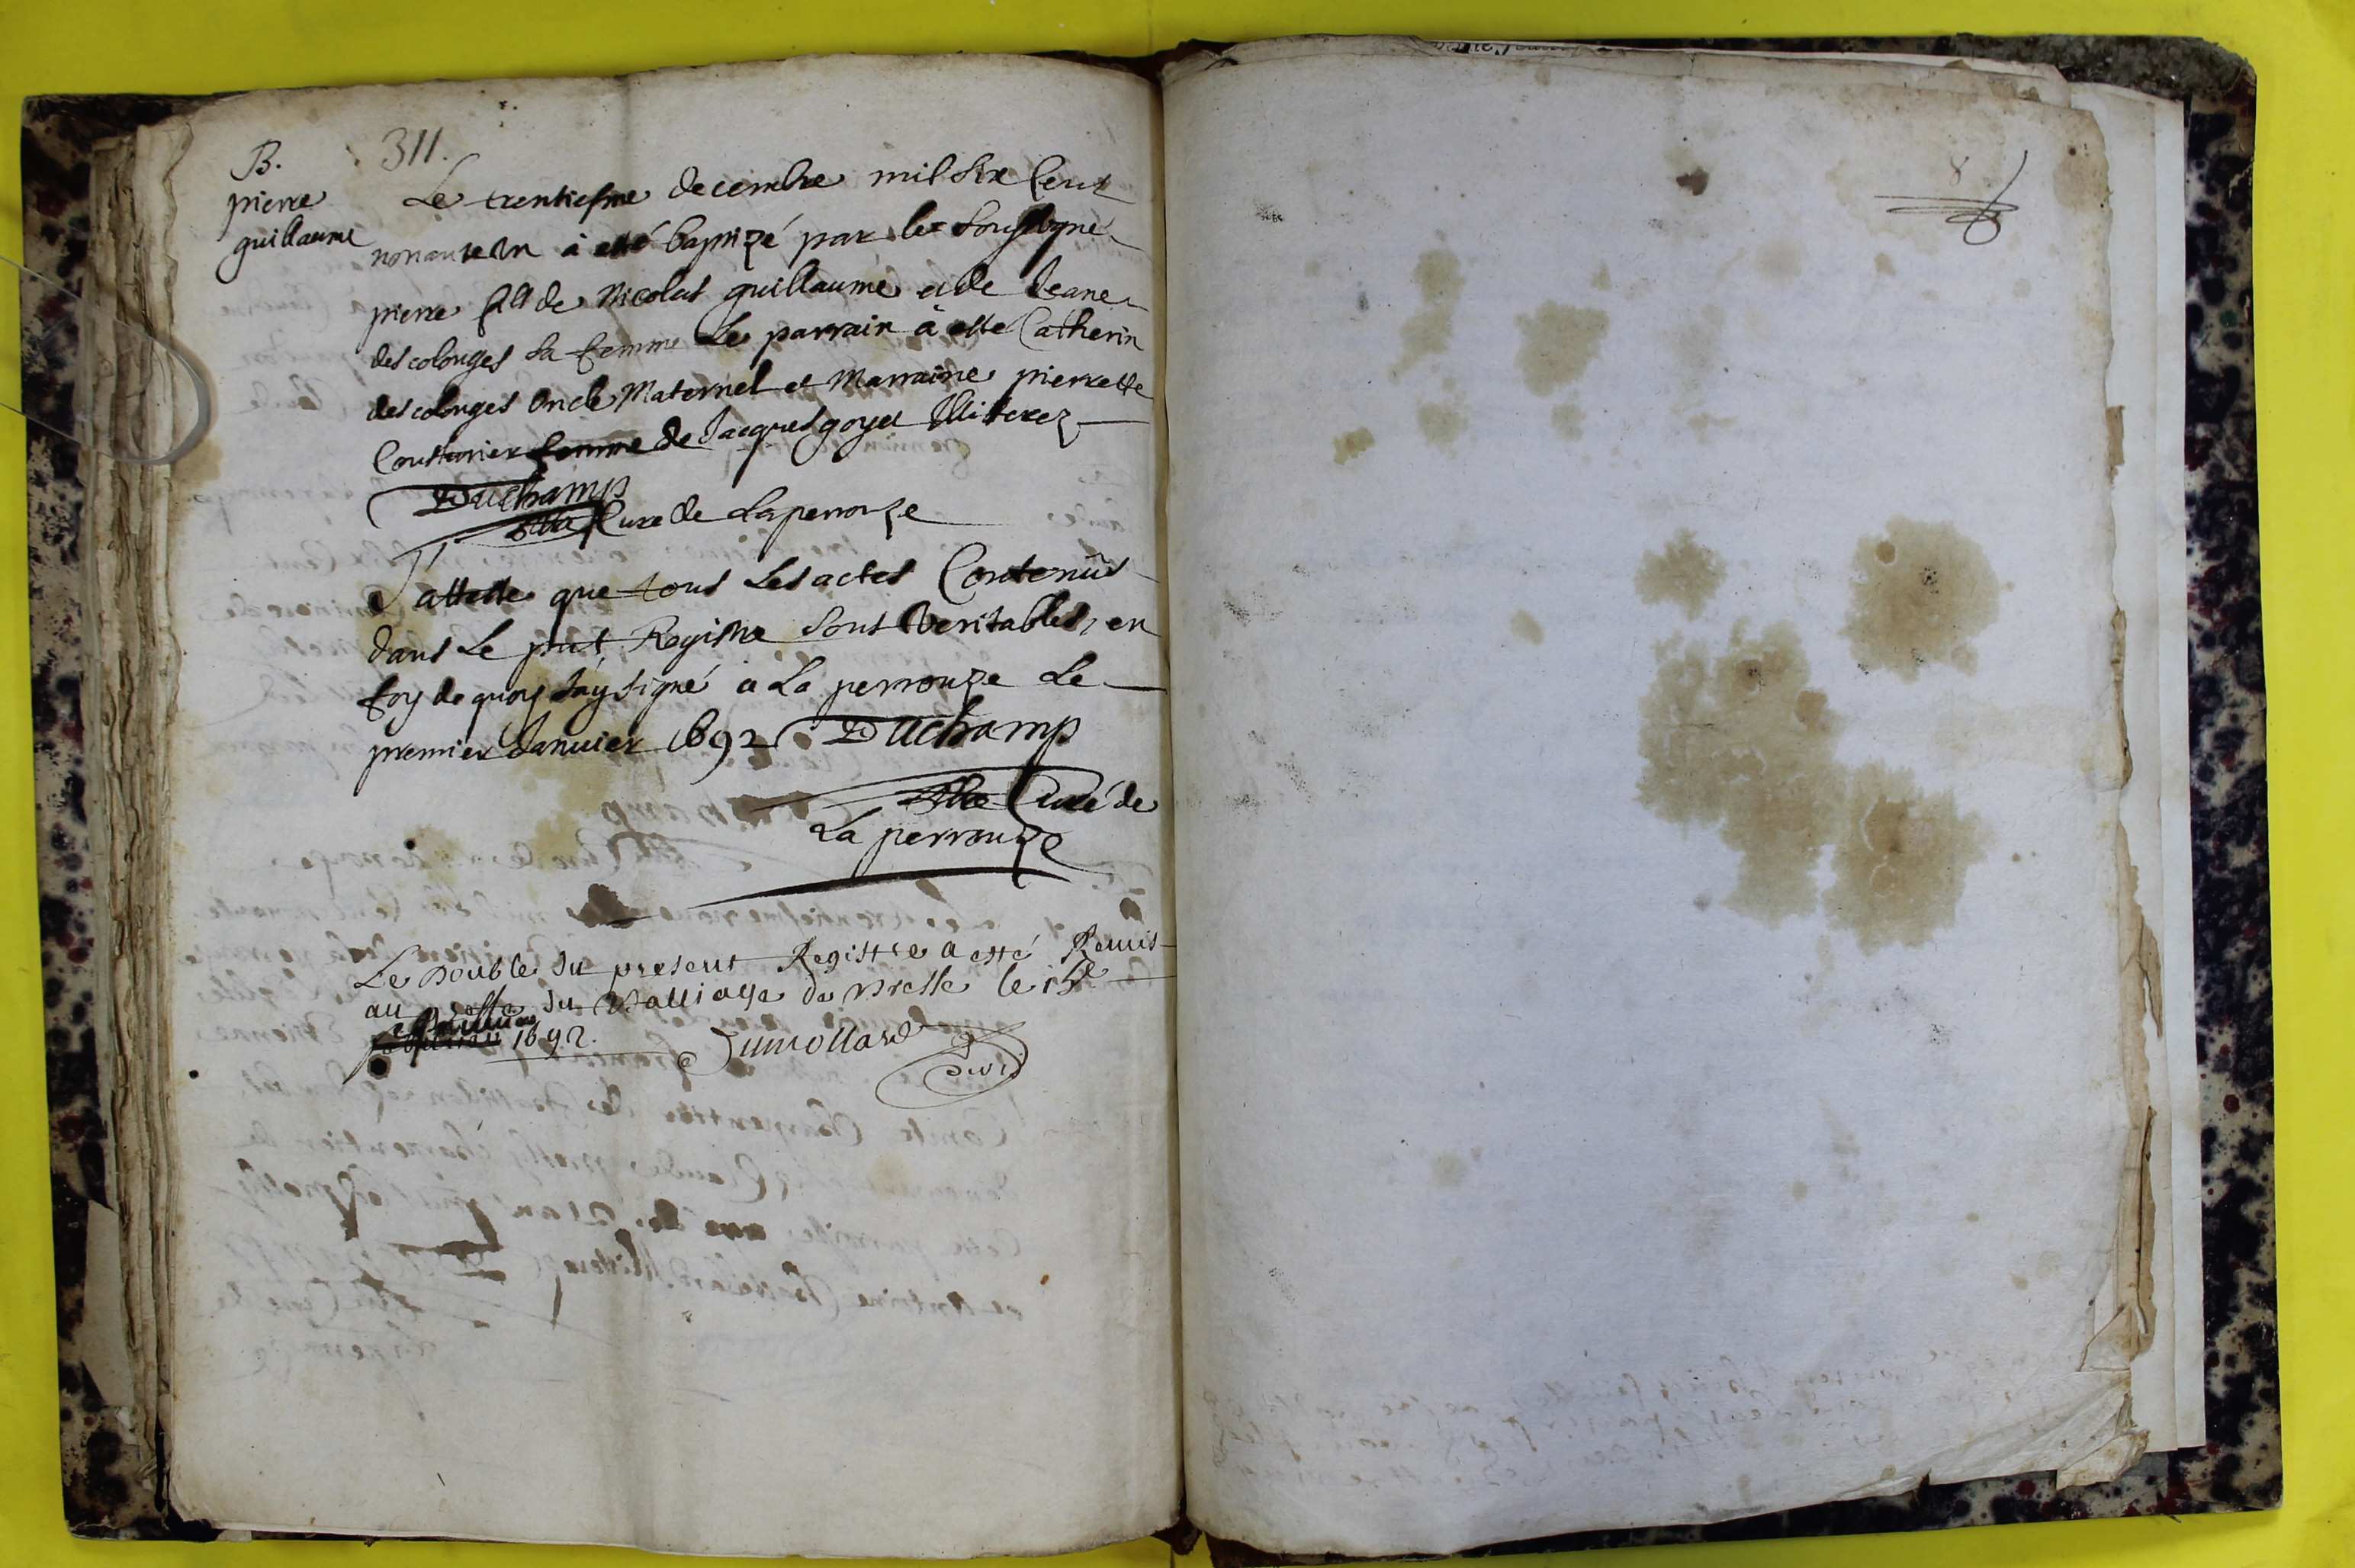 B.
311.
pierre
guillaume
Le trentiesme decembre mil six Cent
nonante Un à esté baptizé par le soussigné
pierre fils de Nicolas guillaume et de Jeane
descolonges sa femme Le parrain à esté Catherin
descolonges Oncle Maternel et Marraine pierrette
Cousturier femme de Jacques goyet Illiterez
Duchamp
Curé de Laperouze
J'atteste que tous Les actes Contenûs
dans Le pnt Registre sont Veritables, en
foy de quoy J'ay signé à La perrouze Le
premier Janvier 1692 Duchamp
Curé de
La perrouze
Le Double du present Registre a esté Remis
au Greffe du Balliage de Bresse le 15e
1692.
Dumollard
8